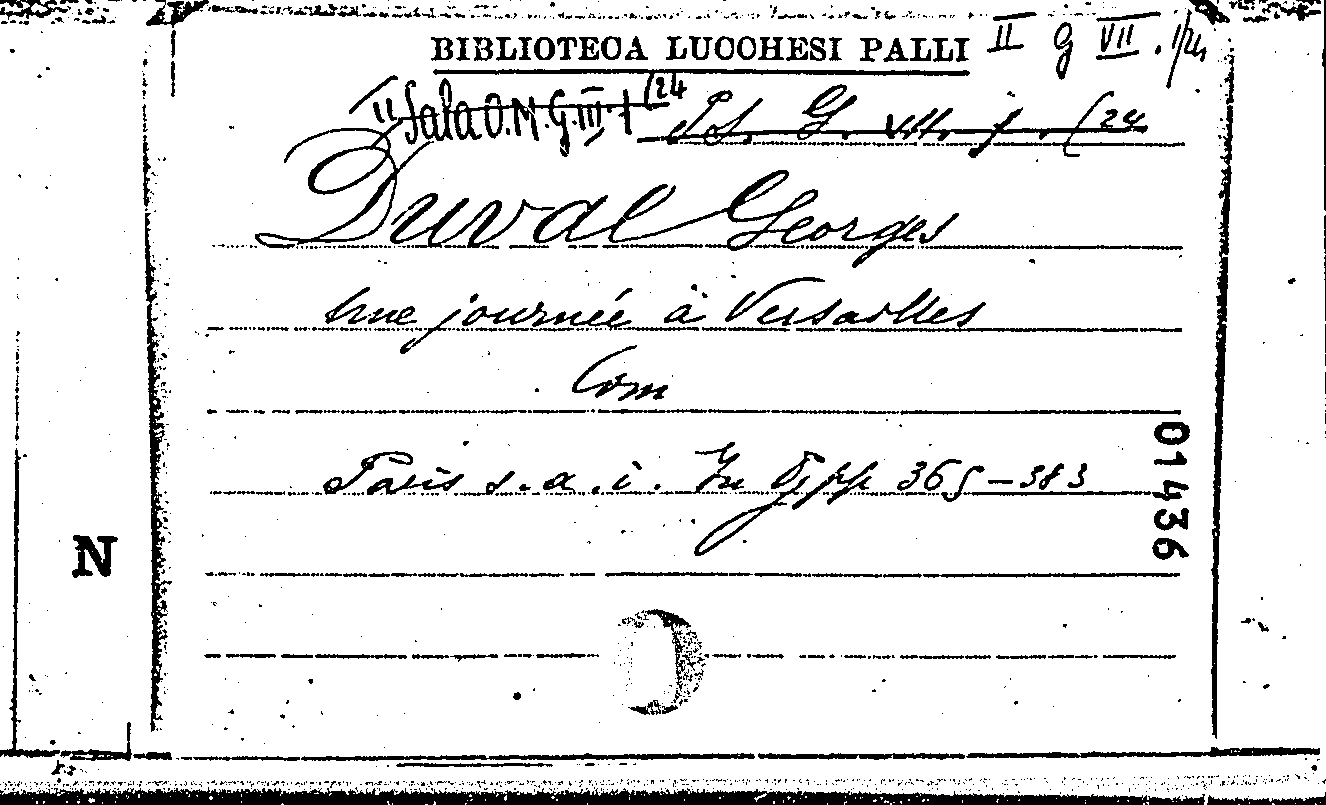 BIBLIOTECA LUCCHESI PALLI II G VII. 1/24
II Sala O.M.G.III.1 (24 G. VII. (24
Duval Georges
Une journée à Versailles
Com
Paris s.a.i. In pp 365-383
01436
N